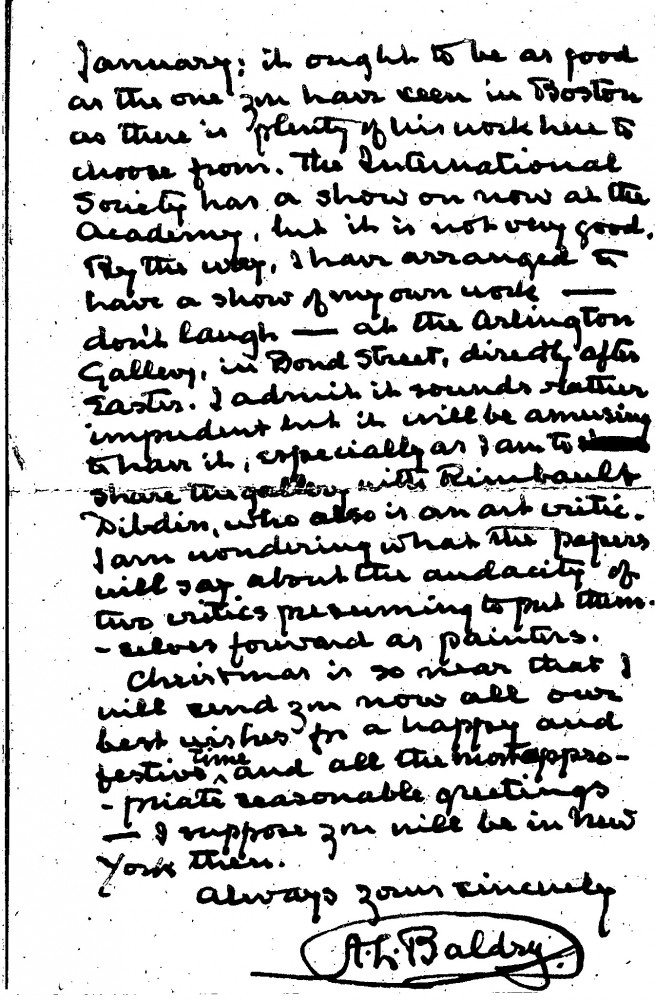 January; it ought to be as good
as the one you have seen in Boston
as there is plenty of his work here to
choose from. The International
Society has a show on now at the
Academy, but it is not very good.
By the way, I have arranged to
have a show of my own work —
don't laugh — at the Arlington
Gallery, in Bond Street, directly after
Easter. I admit it sounds rather
impudent but it will be amusing
to have it, especially as I am to
share the gallery with Rimbault
Dibdin, who also is an art critic.
I am wondering what the papers
will say about the audacity of
two critics presuming to put them-
-selves forward as painters.
Christmas is so near that I
will send you now all our
best wishes for a happy and
festive time and all the most appro-
-priate seasonable greetings
— I suppose you will be in New
York then.
Always yours sincerely
A. L. Baldry.